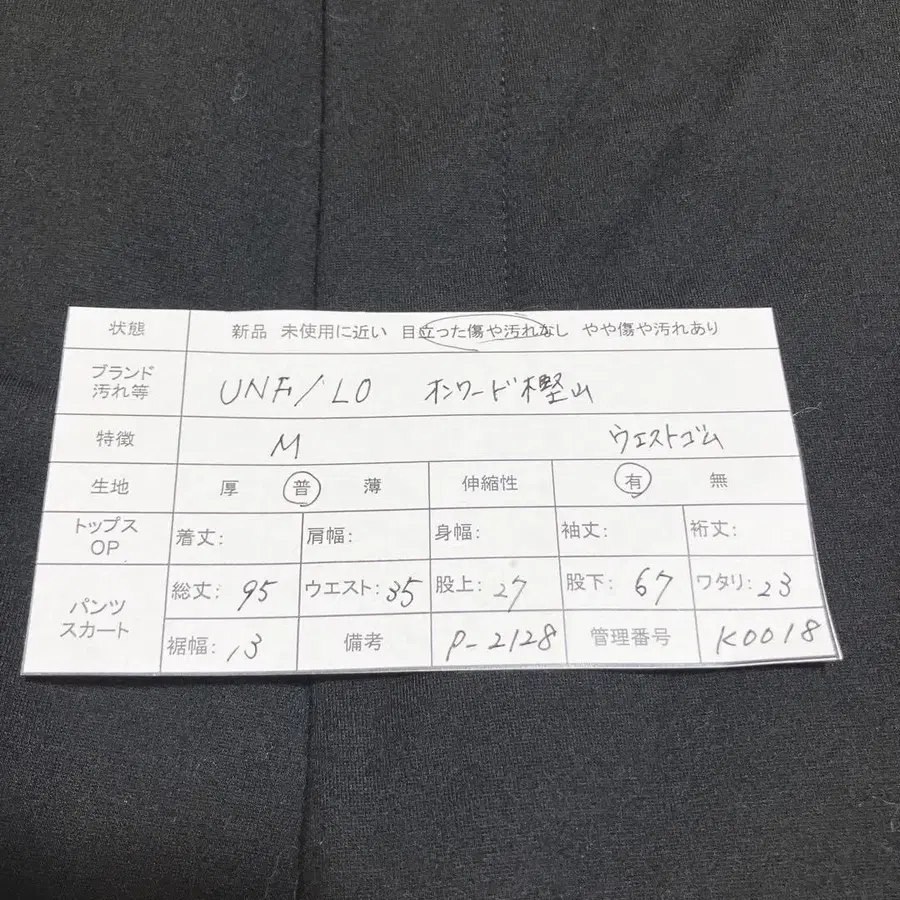 状態 新品 未使用に近い 目立った傷や汚れなし やや傷や汚れあり
ブランド
汚れ等 UNFi/LO オンワード樫山
特徴 M ウエストゴム
生地 厚 普 薄 伸縮性 有 無
トップス
OP 着丈: 肩幅: 身幅: 袖丈: 裄丈:
パンツ
スカート 総丈: 95 ウエスト: 35 股上: 27 股下: 67 ワタリ: 23
裾幅: 13 備考 P-2128 管理番号 K0018